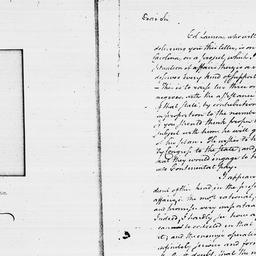 Dear Sir
Col Laurens, who will
delivering you this letter, is on
Carolina, on a project, which I
situation of affairs there, is a
deserves every kind of support
This is to raise two three or
negroes, with the assistance
of that state, by contributions
in proportion to the number
you should think proper
subject with him, he will g
of his plan. He wishes to h
by Congress to the state, and
that they would engage to
into Continental pay.
It appears
dient of this kind, in the pres
affairs, the most rational,
and promises very important
Indeed, I hardly see how a
cannot be collected in that
it; and the enemy's operati
infinitely serious and for
doubt, that the n